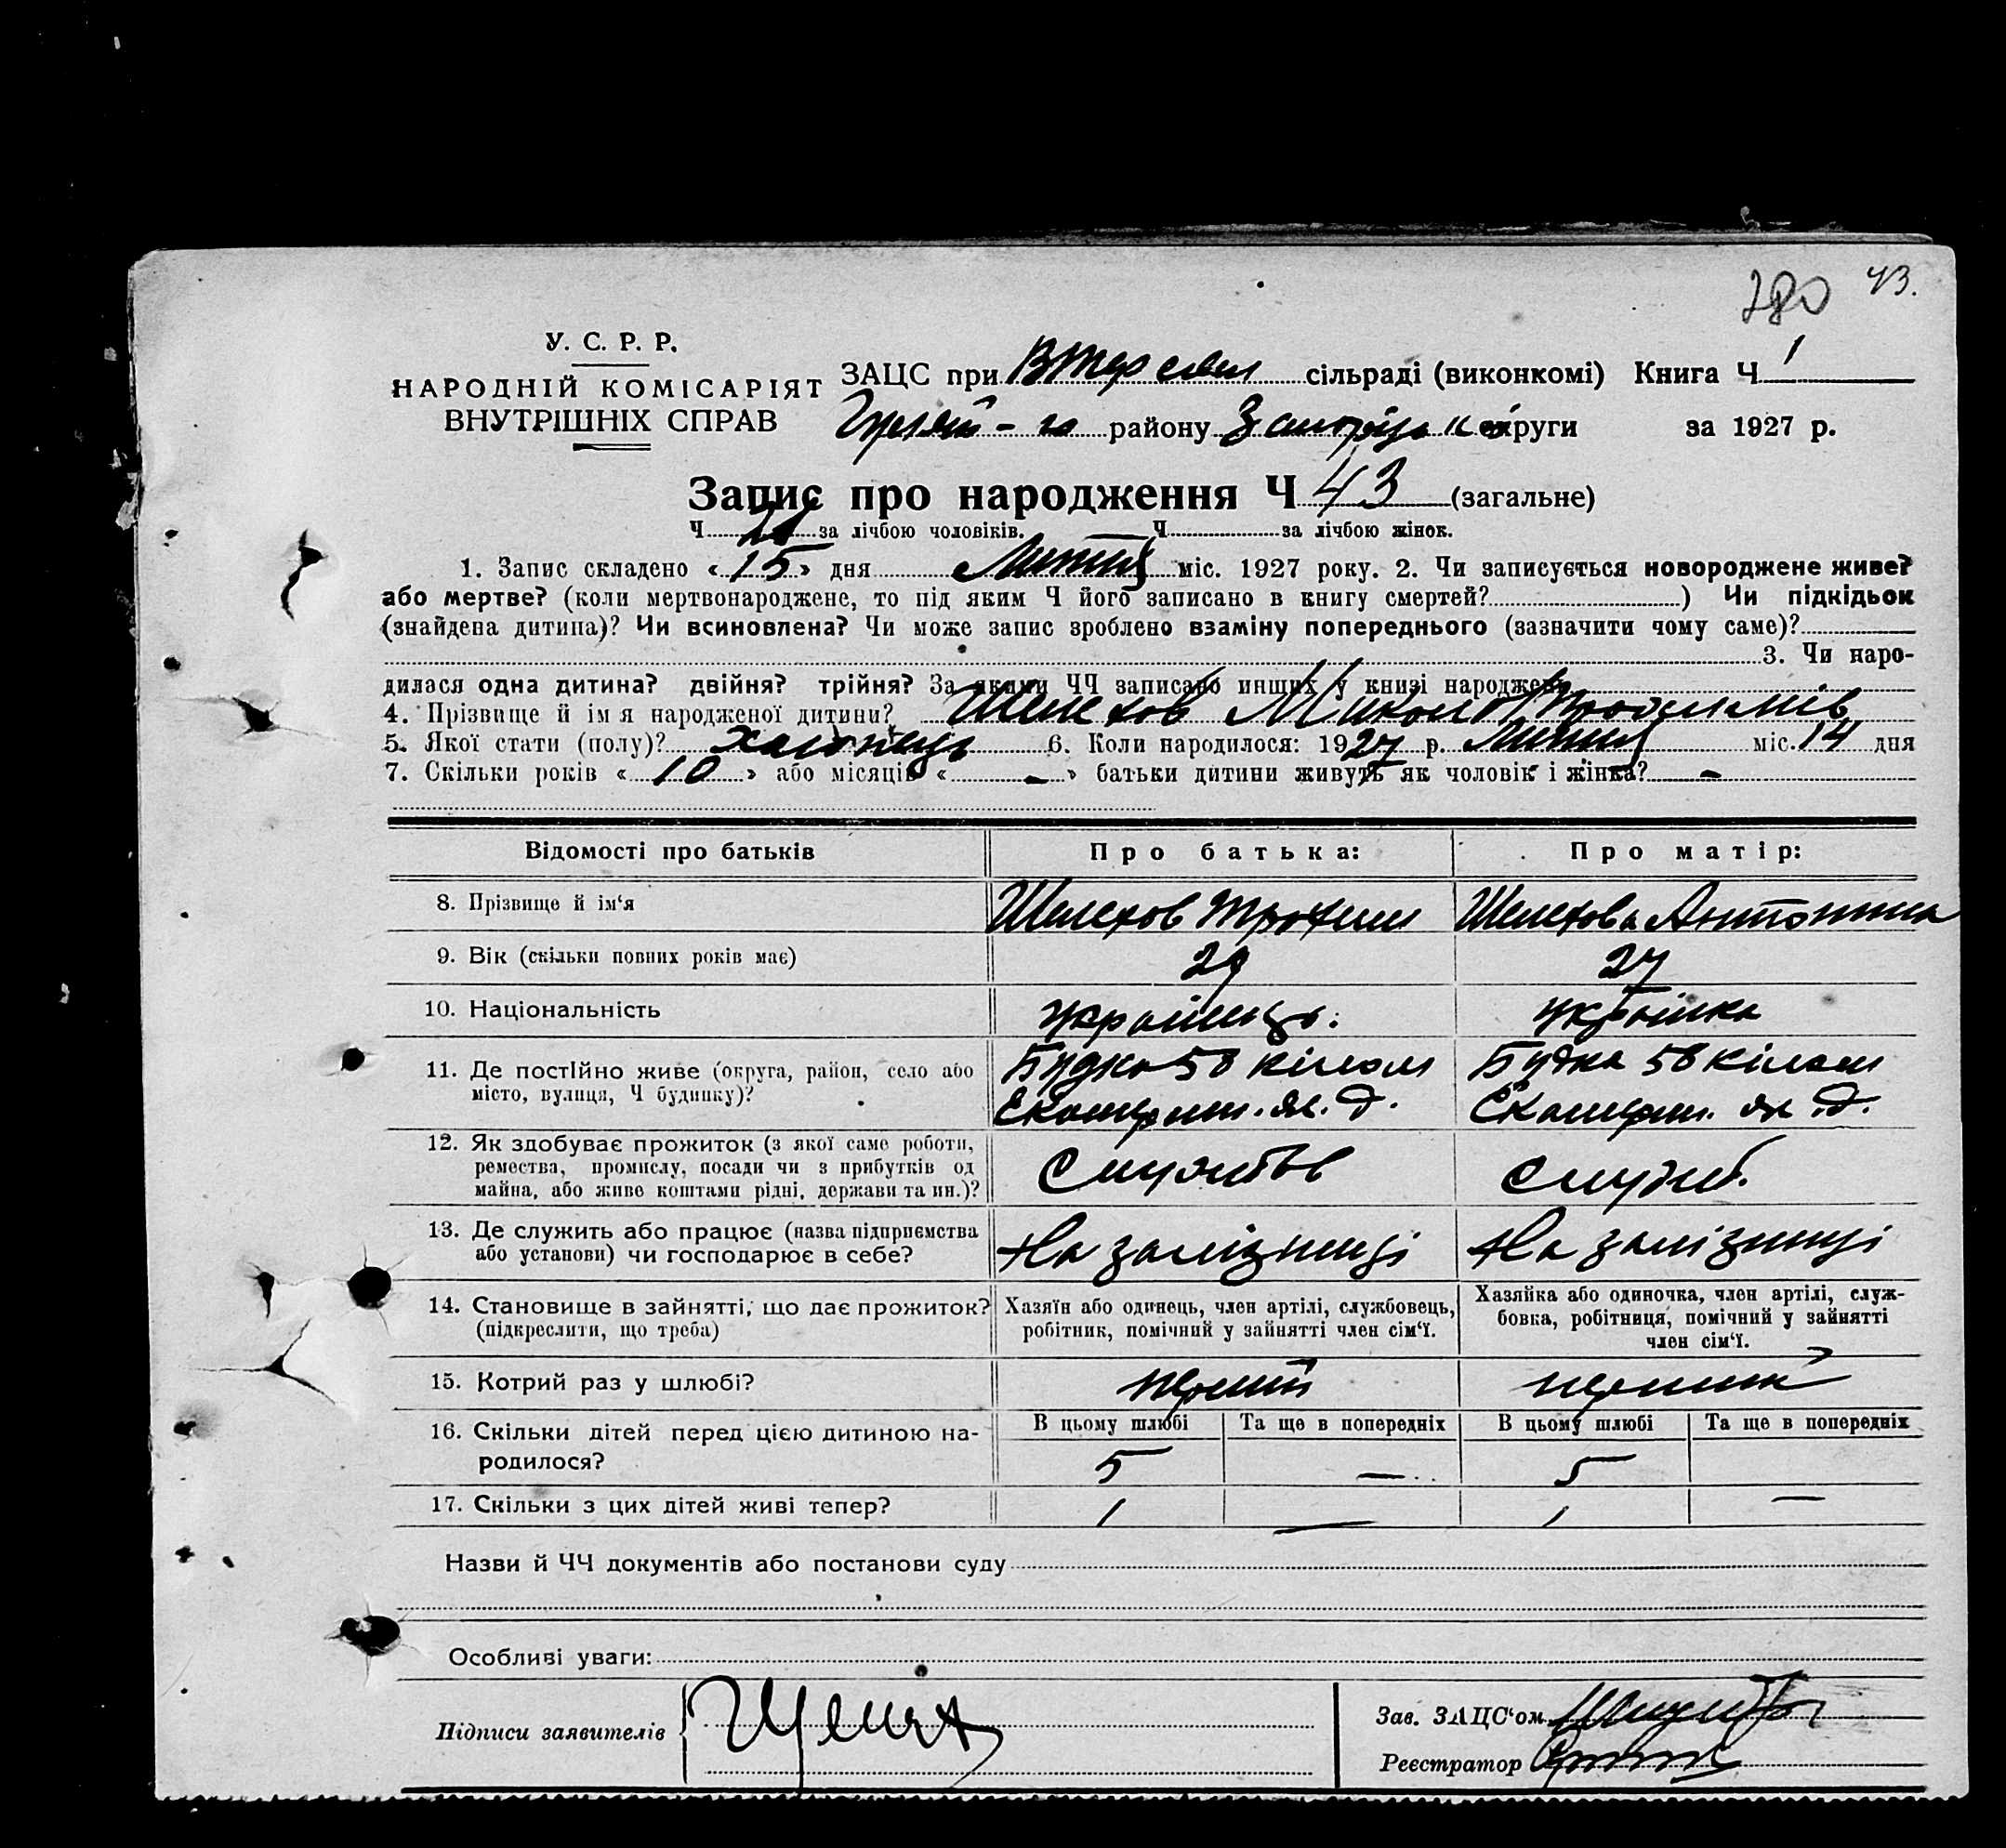 43.
У. С. Р. Р.
НАРОДНІЙ КОМІСАРІЯТ
ВНУТРІШНІХ СПРАВ
ЗАЦС при сільраді (виконкомі) Книга Ч 1
району округи за 1927 р.
Запис про народження Ч 43 (загальне)
Ч за лічбою чоловіків. Ч. — за лічбою жінок.
1. Запис складено «15» дня Лютий міс. 1927 року. 2. Чи записується новороджене живе?
або мертве? (коли мертвонароджене, то під яким Ч його записано в книгу смертей?) Чи підкідьок
(знайдена дитина)? Чи всиновлена? Чи може запис зроблено взаміну попереднього (зазначити чому саме)?
3. Чи наро-
дилася одна дитина? двійня? трійня? За якими ЧЧ записано инших у книзі народжень
4. Прізвище й ім'я народженої дитини? Шелехов Микола Трохимів
5. Якої стати (полу)? хлопець 6. Коли народилося: 1927 р. Лютий міс. 14 дня
7. Скільки років «10» або місяців «-» батьки дитини живуть як чоловік і жінка? -
Відомості про батьків Про батька: Про матір:
8. Прізвище й ім'я Шелехов Трохим Шелехова Антонина
9. Вік (скільки повних років має) 29 27
10. Національність українець. українка
11. Де постійно живе (округа, район, село або Будка 58 кілом Будка 58 кілом
місто, вулиця, Ч будинку)? Екатерин. ж. д. Екатерин. ж. д.
12. Як здобуває прожиток (з якої саме роботи,
ремества, промислу, посади чи з прибутків од
майна, або живе коштами рідні, держави та ин.)?
13. Де служить або працює (назва підприємства На залізниці На залізниці
або установи) чи господарює в себе?
14. Становище в зайнятті, що дає прожиток? Хазяїн або одинець, член артілі, службовець, Хазяйка або одиночка, член артілі, служ-
(підкреслити, що треба) робітник, помічний у зайнятті член сім'ї. бовка, робітниця, помічний у зайнятті
член сім'ї.
15. Котрий раз у шлюбі? перший
16. Скільки дітей перед цією дитиною на- В цьому шлюбі Та ще в попередніх В цьому шлюбі Та ще в попередніх
родилося? 5 — 5
17. Скільки з цих дітей живі тепер? 1 — 1 —
Назви й ЧЧ документів або постанови суду
Особливі уваги:
Підписи заявителів
Зав. ЗАЦС'ом
Реєстратор